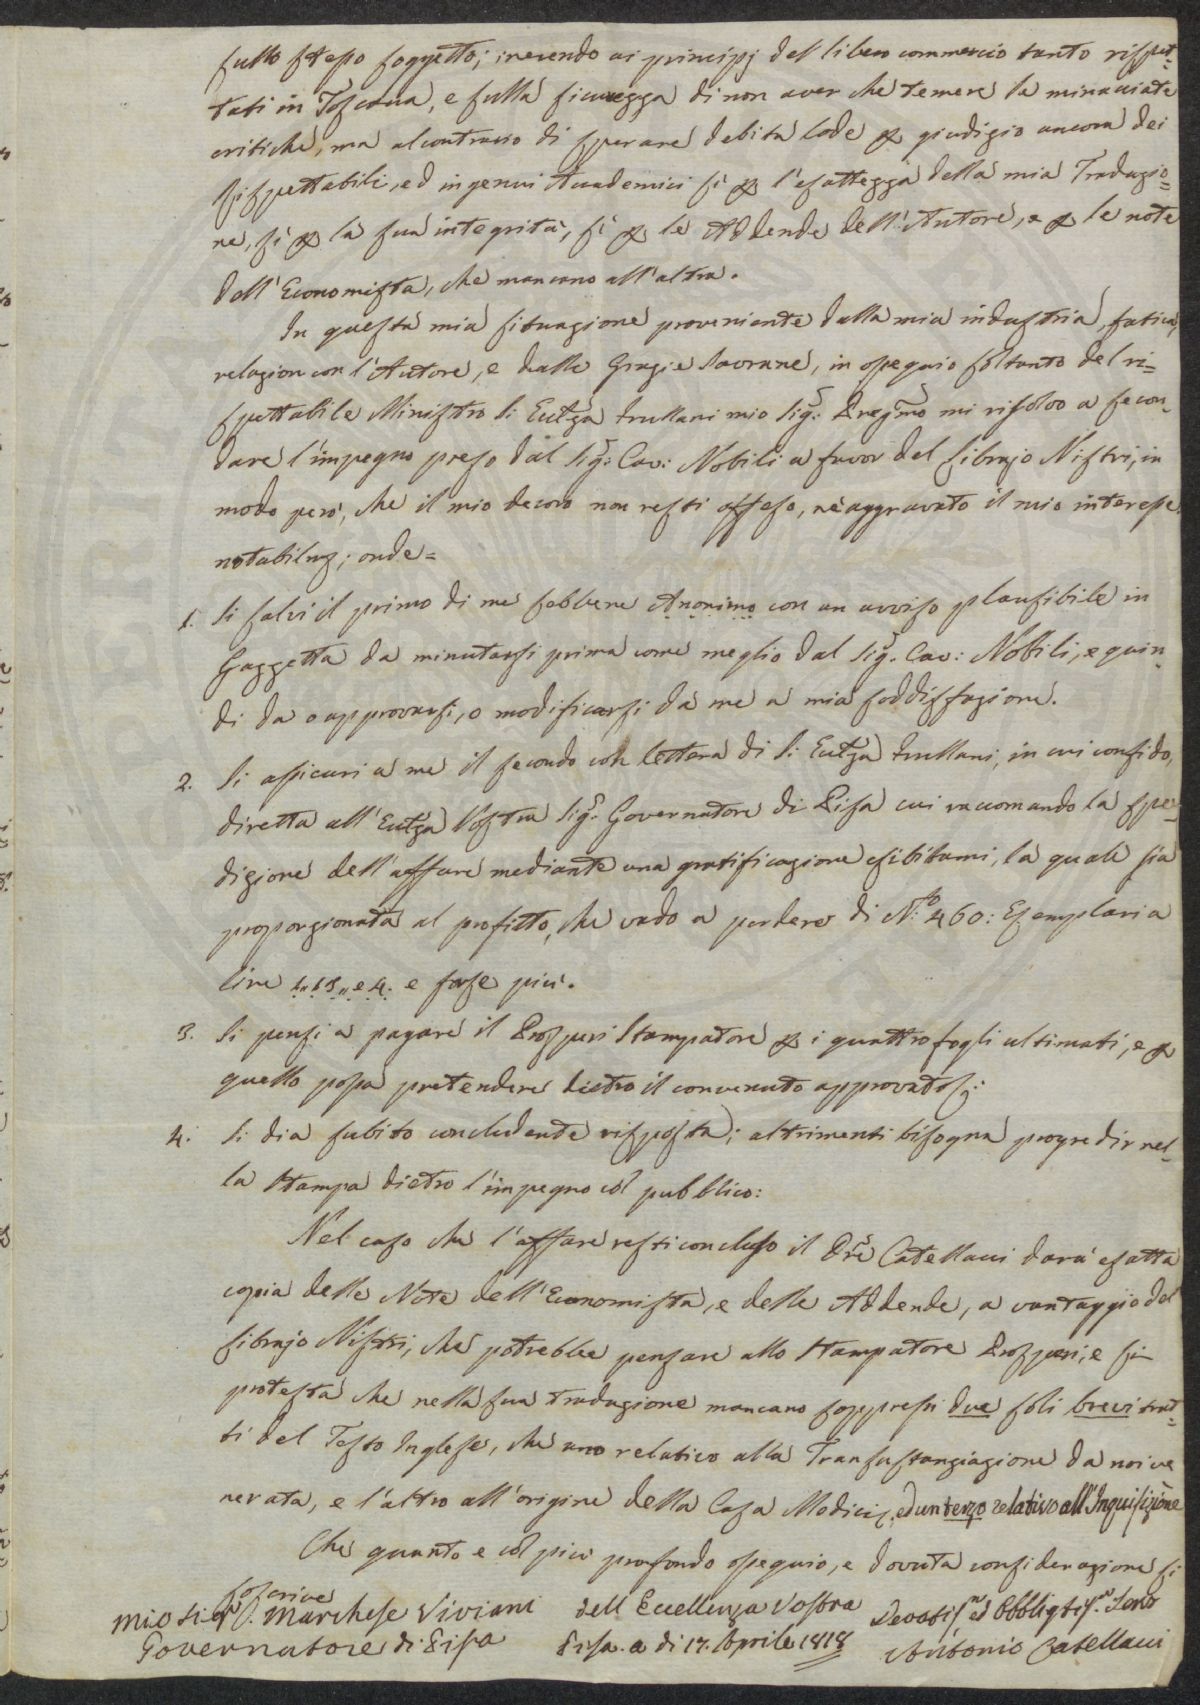 sullo stesso soggetto; inerendo ai principj del libero commercio tanto rispet-
tati in Toscana, e sulla sicurezza di non aver che temere le minacciate
critiche, ma al contrario di sperare debita lode p giudizio ancora dei
Rispettabili, ed ingenui Accademici sì p l'esattezza della mia Traduzio=
ne, sì p la sua integrità, sì p le Addende dell'Autore, e p le note
dell'Economista, che mancano all'altra.
In questa mia situazione proveniente dalla mia industria, fatica,
relazion con l'Autore, e dalle Grazie Sovrane, in ossequio soltanto del ri=
spettabile Ministro Si. Ecclza Frullani mio Sigr: Preg:mo mi risolvo a secon-
dare l'impegno preso dal Sigr: Cav: Nobili a favor del Librajo Nistri, in
modo però, che il mio decoro non resti offeso, nè aggravato il mio interesse
notabilmz; onde=
1. Si salvi il primo di me sebbene Anonimo con un avviso plausibile in
Gazzetta da minutarsi prima come meglio dal Sigr. Cav: Nobili, e quin-
di da o approvarsi, o modificarsi da me a mia soddisfazione.
2. Si assicuri a me il secondo con lettera di Si. Ecclza Frullani, in cui confido,
diretta all'Ecclza Vostra Sigr. Governatore di Pisa cui raccomando la spe-
dizione dell'affare mediante una gratificazione esibitami, la quale sia
proporzionata al profitto, che vado a perdere di N:o 460: Esemplari a
lire e 4. e forse più.
3. Si pensi a pagare il Prosperi Stampatore p i quattro fogli ultimati, e p
quello possa pretendere dietro il convenuto approvatosj:
4. Si dia subito concludente risposta; altrimenti bisogna progredir nel-
la Stampa dietro l'impegno col pubblico:
Nel caso che l'affare resti concluso il Dre Catellacci darà esatta
copia delle Note dell'Economista, e delle Addende, a vantaggio del
Librajo Nistri, che potrebbe pensare allo Stampatore Prosperi, e si
protesta che nella sua traduzione mancano soppressi due soli brevi trat-
ti del Testo Inglese, che uno relativo alla Transustanziazione da noi ve
nerata, e l'altro all'origine della Casa Medici, ed un terzo relativo all'Inquisizione
Che quanto e col più profondo ossequio, e dovuta considerazione si
soscrive
Mio Sigr. Marchese Viviani dell'Eccellenza Vostra Devotis.mo ed Obbligtis.mo Servo
Governatore di Pisa Pisa a di 17. Aprile 1818 Antonio Catellacci